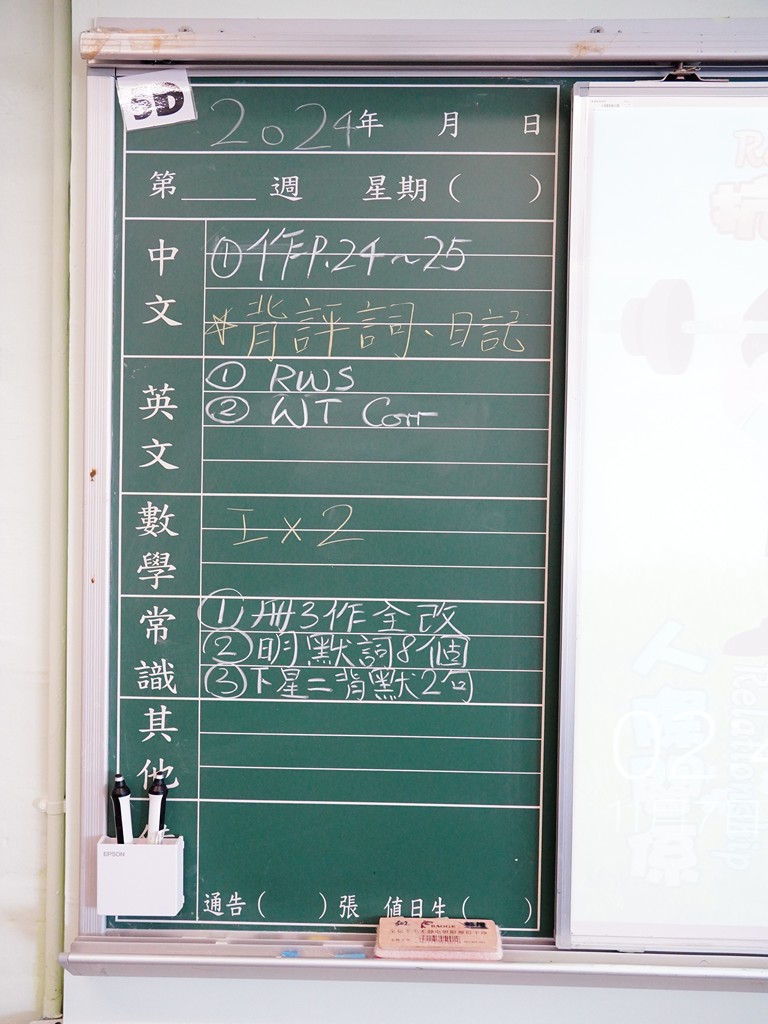 5D
2024年 月 日
第____週 星期( )
中文
①作P.24~25
*背評詞、日記
英文
① RWS
② WT Corr
數學
工×2
常識
①冊3作全改
②明默詞8個
③下星二背默2句
其他
EPSON
通告( )張 值日生( )
BAOGE
人際關係
Relationship
02